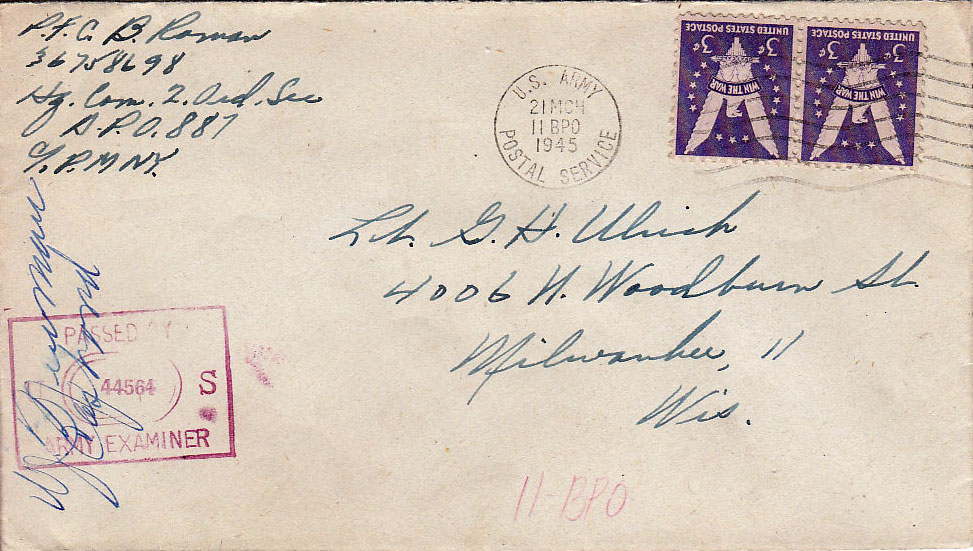 P.F.C. B. Roman
36758698
Hq. Com. Z. Ord. Sec
A.P.O. 887
c/o P.M NY.
U.S. ARMY
21 MCH
11 BPO
1945
POSTAL SERVICE
UNITED STATES POSTAGE
3¢ 3¢
WIN THE WAR
UNITED STATES POSTAGE
3¢ 3¢
WIN THE WAR
Lt. G. H. Ulrich
4006 N. Woodburn St.
Milwaukee, 11
Wis.
PASSED BY
44564 S
ARMY EXAMINER
11-BPO